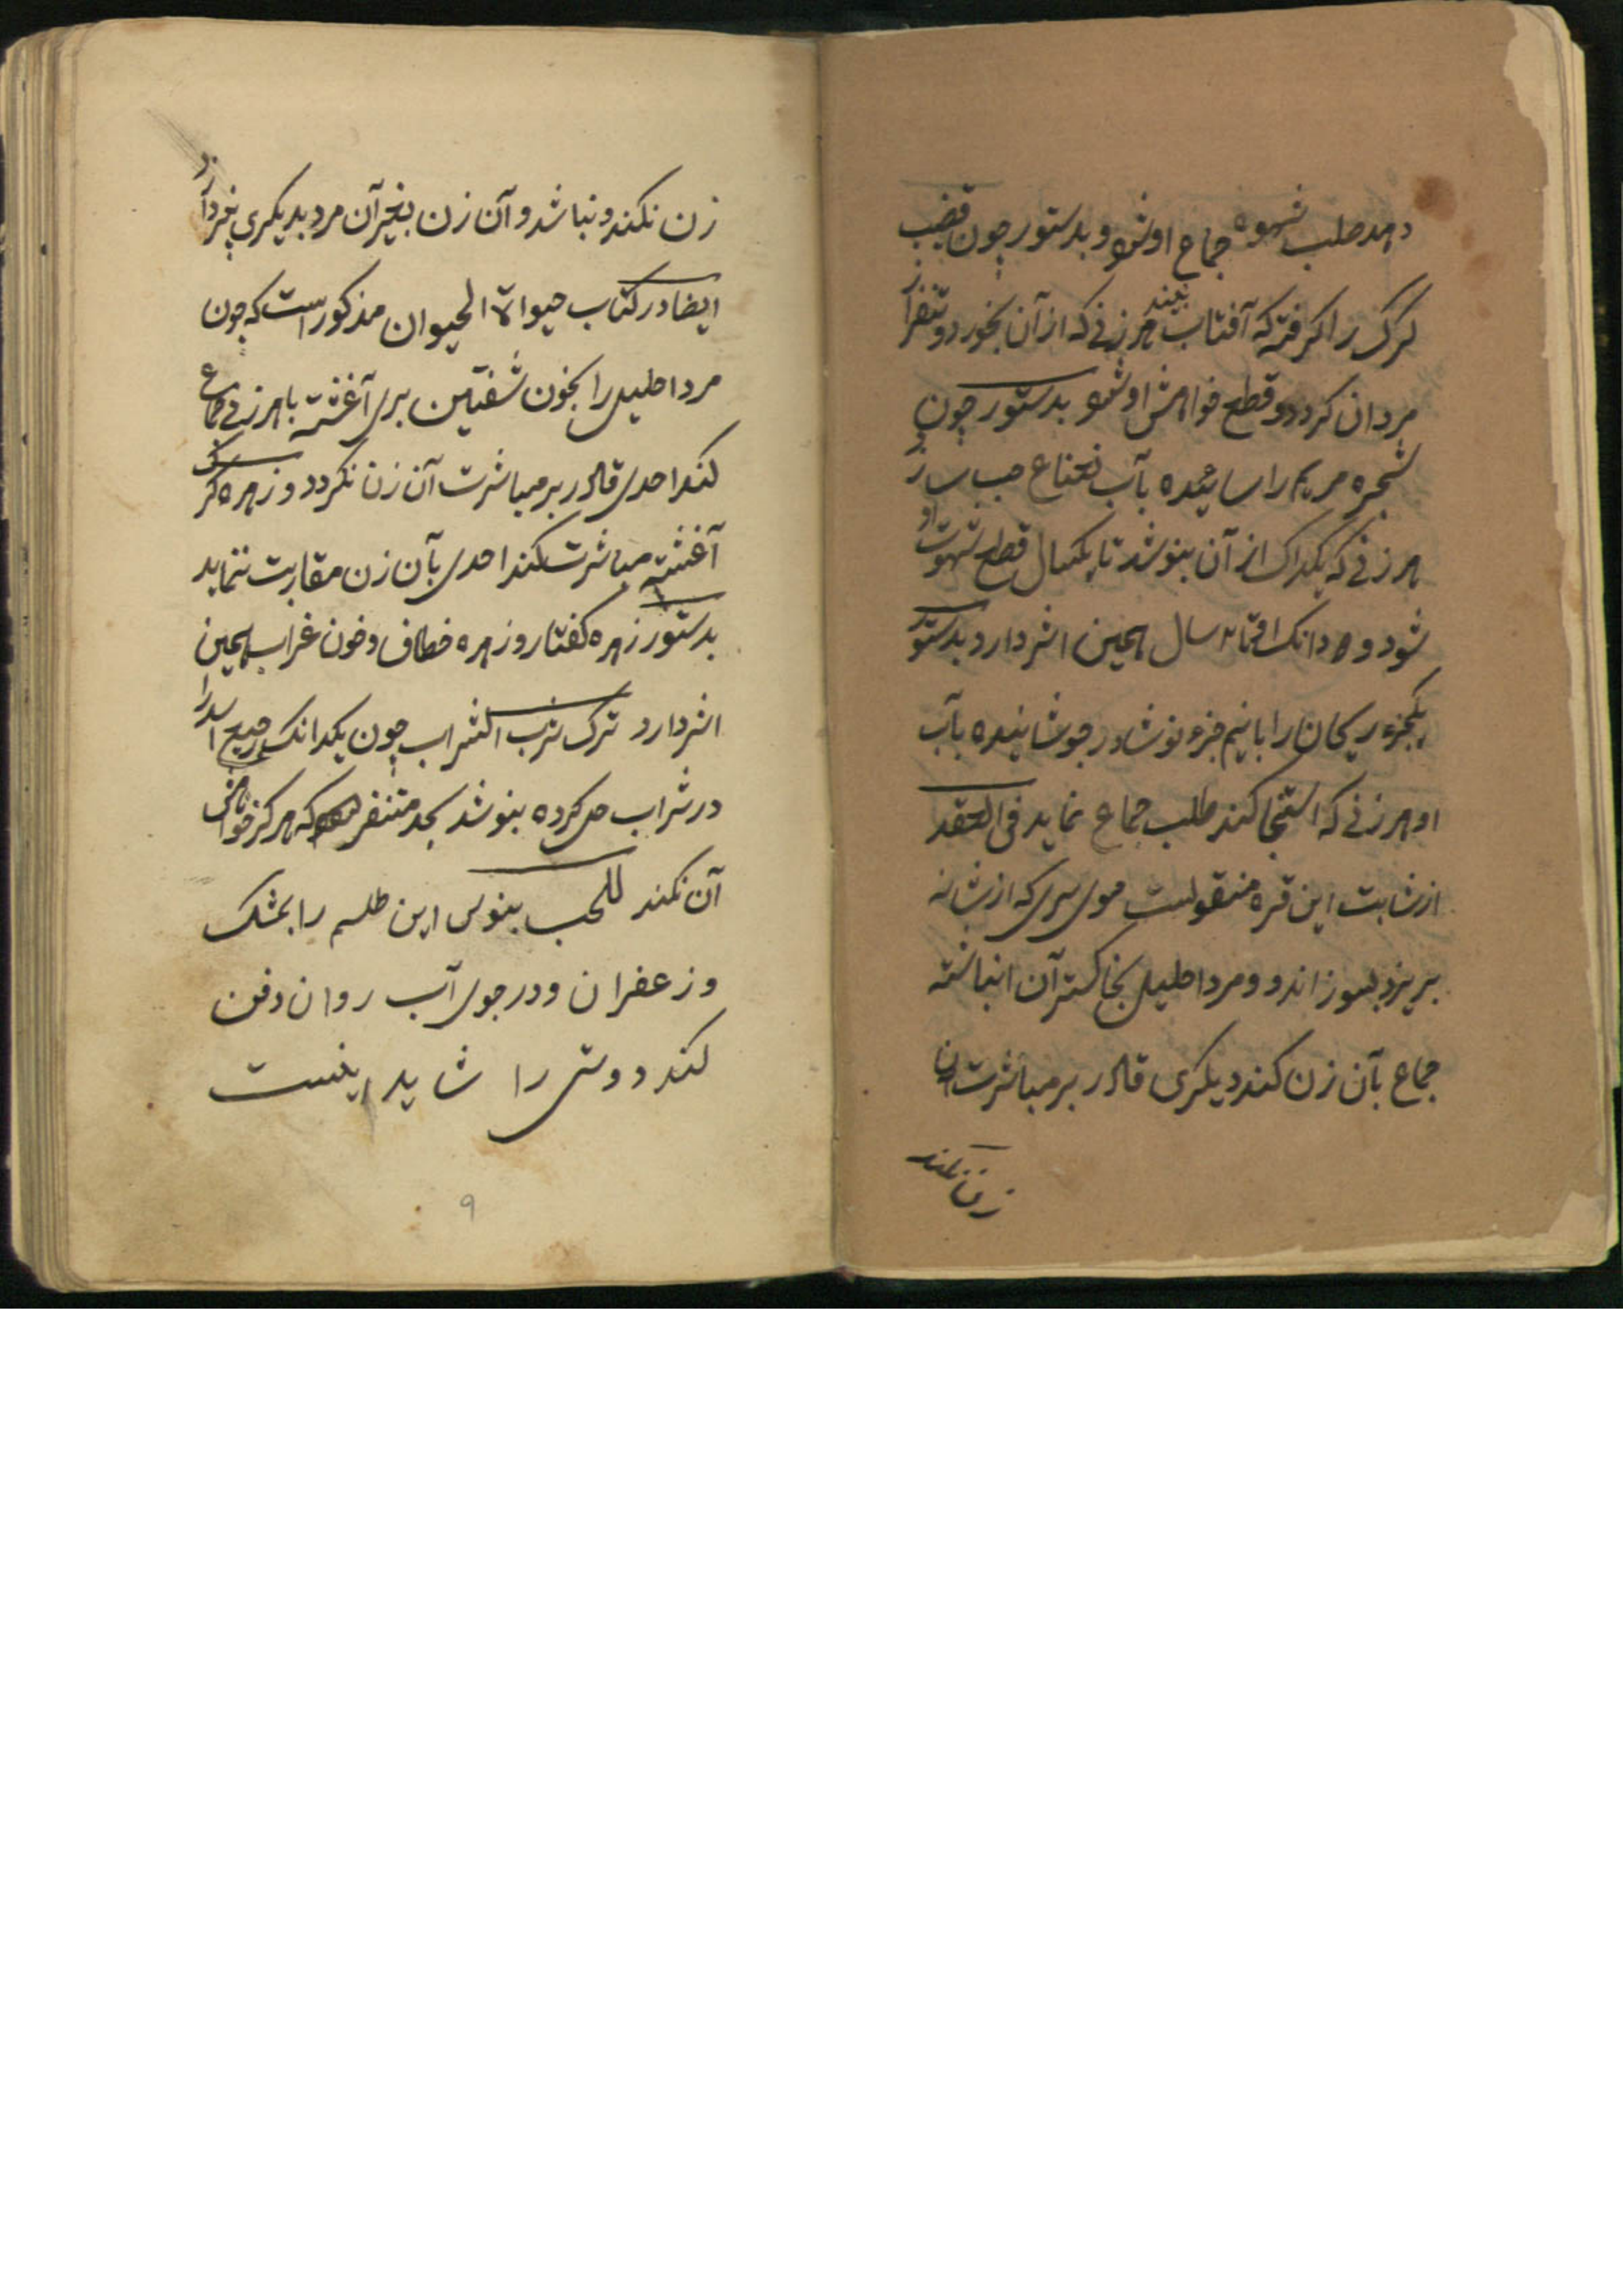 دهد صلب شهوة جماع او شود و بدستور چون قضیب
کرک را کرفته که آفتاب نبیند هر زنی که از آن بخورد و متنفر از
مردان کردد و قطع خواهش او شود بدستور چون
شجره مریم را سائیده بآب نعناع حب سازد
هر زنی که یکدانک از آن بنوشد تا یکسال قطع شهوت او
شود و دو دانک او تا دو سال همین اثر دارد بدستور
یکجزء ریحان را با نیم جزء نوشادر جوشانیده بآب
او هر زنی که استنجا کند طلب جماع نماید فی العقد
از ثابت ابن قره منقولست موی سری که از شانه
بریزد بسوزاند و مرد احلیل بخاکستر آن انباشته
جماع بآن زن کند دیکری قادر بر مباشرت آن
زن نکند
زن نکند و نباشد و آن زن بغیر آن مرد بدیکری نپردازد
ایضا در کتاب حیواة الحیوان مذکور است که چون
مرد احلیل را بخون شفتین بری آغشته با هر زنی جماع
کند احدی قادر بر مباشرت آن زن نکردد و زهره کرک
آغشته مباشرت کند احدی بآن زن مقاربت ننماید
بدستور زهره کفتار و زهره خطاف و خون غراب همین
اثر دارد ترک شرب الشراب چون یکدانک رجیع اسد را
در شراب حل کرده بنوشد بحد متنفر شود که هرکز خواهش
آن نکند للحب بنویس این طلسم را بمشک
و زعفران و در جوی آب روان دفن
کند دوستی را شاید اینست
۹